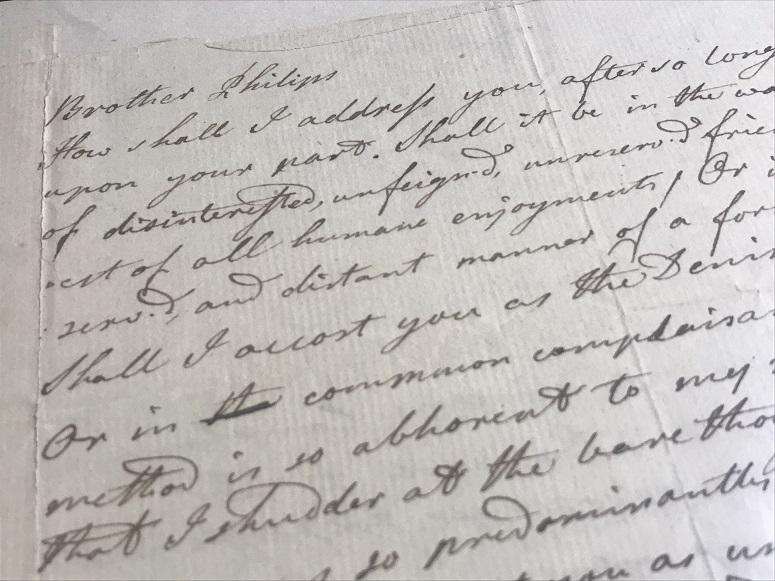 Brother Philips
How shall I address you, after so long
upon your part. Shall it be in the wa
of disinterested, unfeign.d, unreserv.d frie
est of all humane enjoyments, Or i
serv.d, and distant manner of a for
Shall I accost you as the Deni
Or in the common complaisa
method is so abhorent to my
that I shudder at the bare tho
so predominantly
you as un